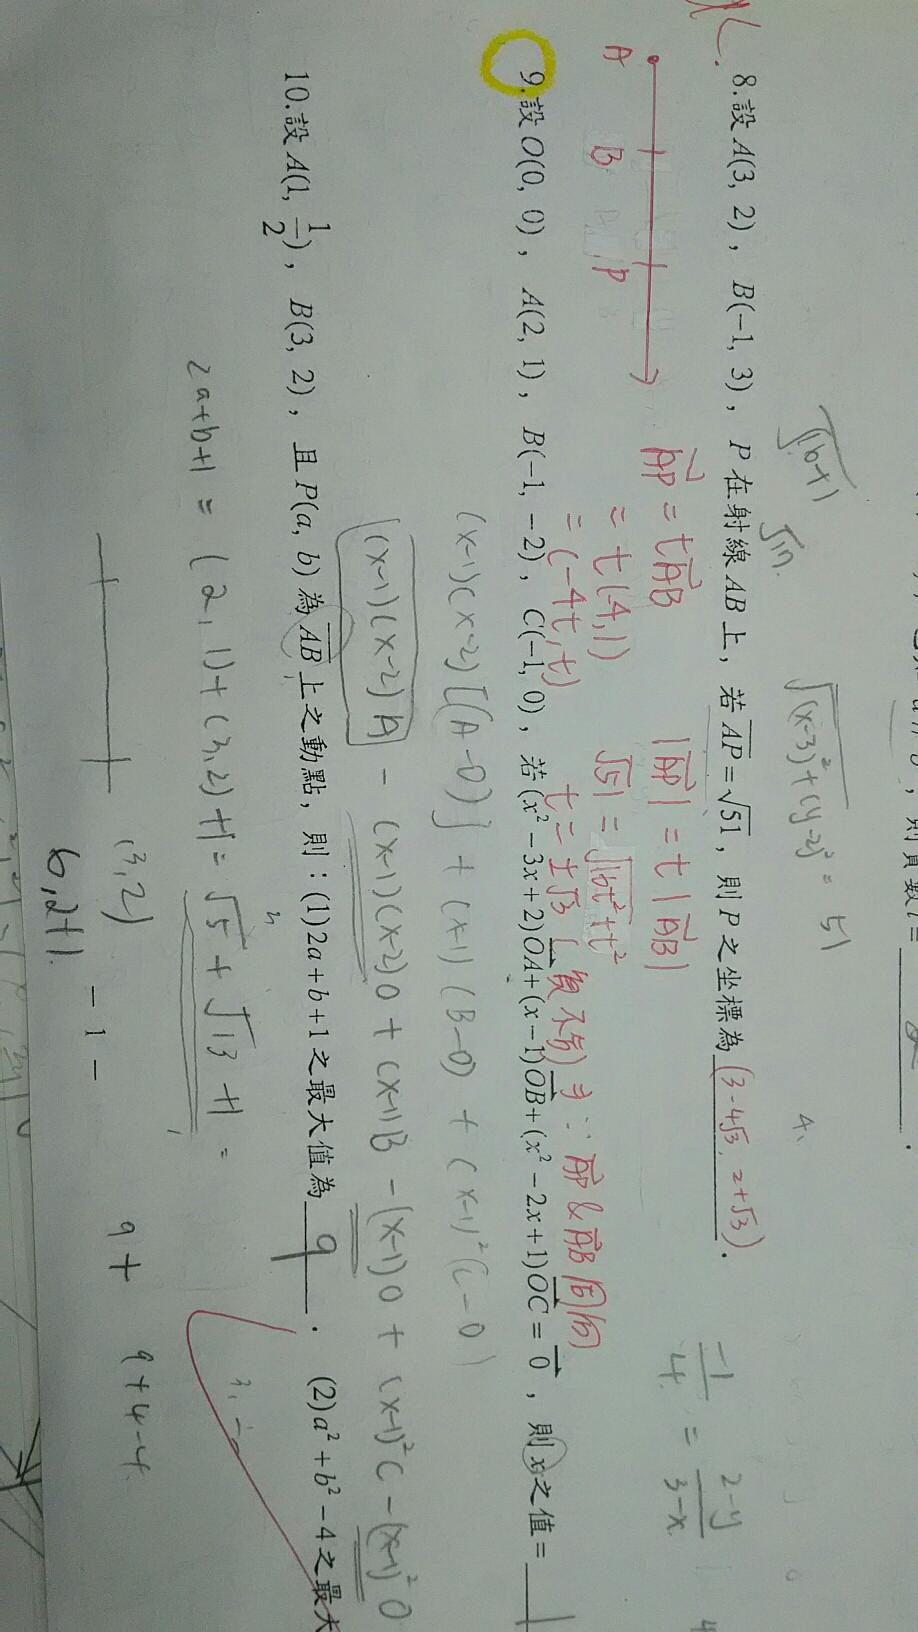 8.設 A(3, 2)，B(−1, 3)，P 在射線 AB 上，若 AP=√51，則 P 之坐標為 (3-4√3, 2+√3).
√16+1
√17
√(x-3)²+(y-2)² = 51
A B P
AP = tAB
= t(-4,1)
= (-4t, t)
|AP| = t|AB|
√51 = √16t²+t²
t = ±√3 (負不合) ∵ AP & AB 同向
-1/4 = 2-y/3-x
9.設 O(0, 0)，A(2, 1)，B(−1, −2)，C(−1, 0)，若 (x²−3x+2)OA+(x−1)OB+(x²−2x+1)OC=0，則 x 之值= 1
(x-1)(x-2)[(A-O)] + (x-1)(B-O) + (x-1)²(C-O)
(x-1)(x-2)A - (x-1)(x-2)O + (x-1)B - (x-1)O + (x-1)²C - (x-1)²O
10.設 A(1, 1/2)，B(3, 2)，且 P(a, b) 為 AB 上之動點，則：(1)2a+b+1 之最大值為 9 . (2)a²+b²−4 之最大
2a+b+1 = (2,1)+(3,2)+1 = √5+√13+1 =
(3,2)
6,2+1.
9+
9+4-4
− 1 −